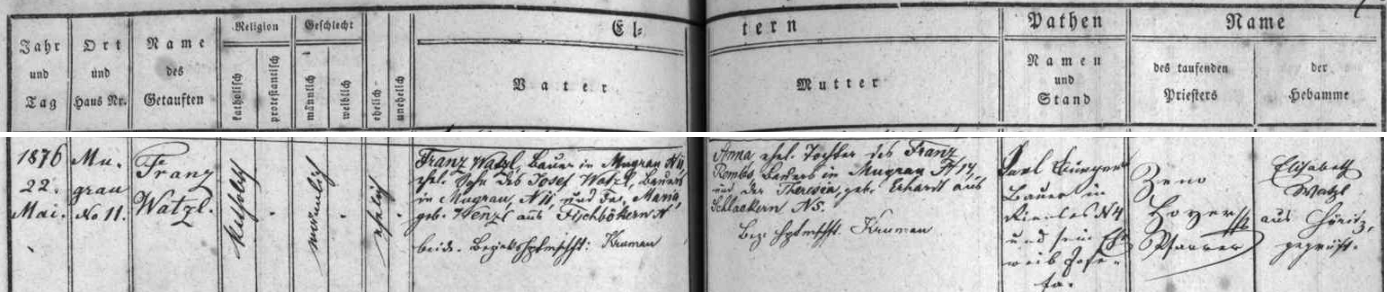 Jahr
und
Tag
Ort
und
Haus Nr.
Name
des
Getauften
Religion
katholisch
protestantisch
Geschlecht
männlich
weiblich
ehelich
unehelich
El-
Vater
tern
Mutter
Pathen
Namen
und
Stand
Name
des taufenden
Priesters
der
Hebamme
1876
22.
Mai.
Mu-
grau
No 11.
Franz
Watzl.
katholisch
männlich
ehelich
Franz Watzl, Bauer in Mugrau N 11,
ehel. Sohn des Josef Watzl, Bauers
in Mugrau, N 11, und der Maria,
geb. Wenzl aus Fischbökern N
beide. Bezirkshptmschft: Krumau
Anna ehel. Tochter des Franz
Bauers in Mugrau N 17,
und der Theresia, geb. Erhardt aus
Schlackern N 5.
Bez: hptmschft. Krumau
Karl
Bauer in
N 4
und sein Ehe-
weib Jose-
fa.
Zeno
Hoyer
Pfarrer
Elisabeth
Watzl
aus Höritz,
geprüft.